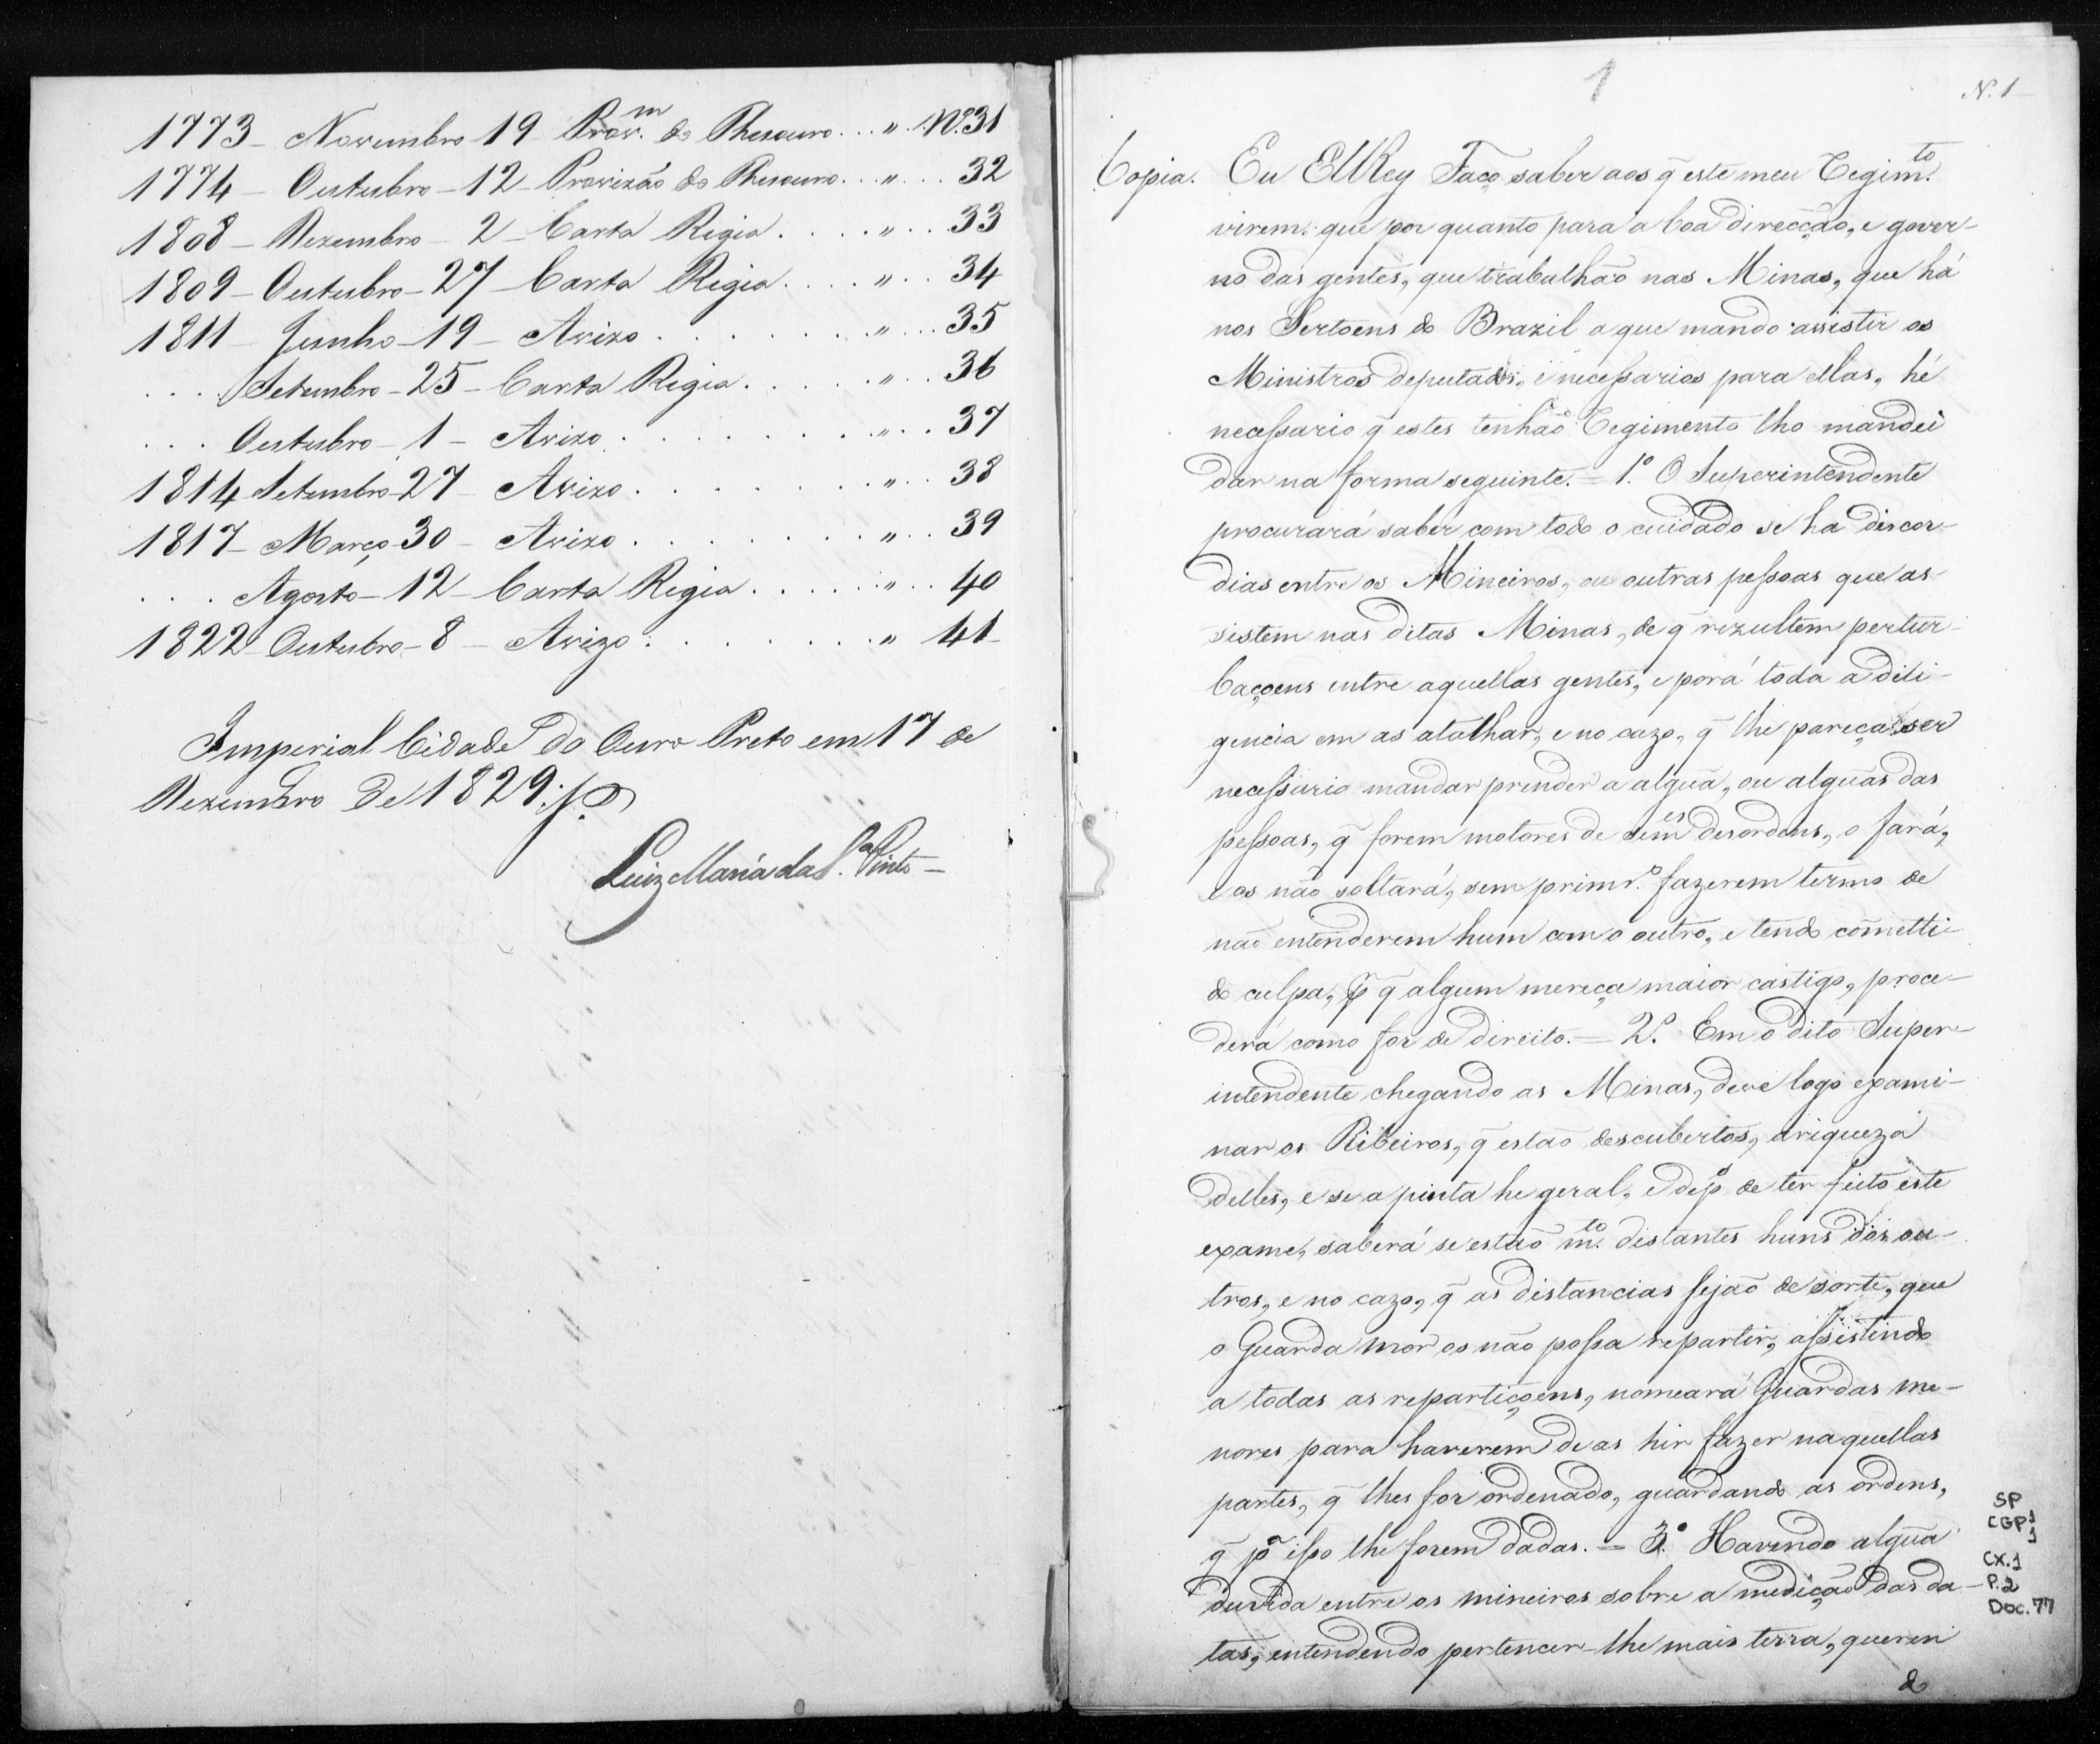 1773 - Novembro - 19 - Prov.m do Thesouro . . . " . No. 31
1774 - Outubro - 12 - Provizão do Thesouro . . . " . . . 32
1808 - Dezembro - 2 - Carta Regia . . . . " . . 33
1809 - Outubro - 27 - Carta Regia . . . . " . . 34
1811 - Junho - 19 - Avizo . . . . . . . " . . . 35
. . . . Setembro - 25 - Carta Regia . . . . . " . . 36
. . . Outubro - 1 - Avizo . . . . . . . . " . . 37
1814 Setembro - 27 - Avizo . . . . . . . " . . 38
1817 - Março - 30 - Avizo . . . . . . . " . . 39
. . . Agosto - 12 - Carta Regia . . . . . " . . 40
1822 - Outubro - 8 - Avizo : . . . . . . " 41
Imperial Cidade do Ouro Preto em 17 de
Dezembro de 1829.
Luiz Maria da S.a Pinto -
1
N. 1
Copia. Eu ElRey Faço saber aos q̃ este meu Regim.to
virem: que por quanto para a boa direcção, e gover-
no das gentes, que trabalhão nas Minas, que há
nos Sertoens do Brazil a que mando assistir os
Ministros deputados, e necessarios para ellas, hé
necessario q̃ estes tenhão Regimento lho mandei
dar na forma seguinte. = 1.º O Superintendente
procurará saber com todo o cuidado se ha discor-
dias entre os Mineiros, ou outras pessoas que as-
sistem nas ditas Minas, de q̃ rezultem pertur-
baçoens entre aquellas gentes, e porá toda a dili-
gencia em as atalhar, e no cazo, q̃ lhe pareça ser
necessario mandar prender a algũa, ou algũas das
pessoas, q̃ forem motores de sem.es desordens, o fará,
e os não soltará, sem prim.º fazerem termo de
não entenderem hum com o outro, e tendo cõmetti-
do culpa, p q̃ algum mereça maior castigo, proce-
derá como for de direito. = 2.º Em o dito Super-
intendente chegando as Minas, deve logo exami-
nar os Ribeiros, q̃ estão descubertos, a riqueza
delles, e se a pinta he geral, e dep.s de ter feito este
exame, saberá se estão m.to distantes huns dos ou-
tros, e no cazo, q̃ as distancias sejão de sorte, que
o Guarda mor os não possa repartir, assistindo
a todas as repartiçoens, nomeará Guardas me-
nores para haverem de as hir fazer naquellas
partes, q̃ lhes for ordenado, guardando as ordens,
q̃ p.a isso lhe forem dadas. = 3.º Havendo algũa
duvida entre os mineiros sobre a medição das da-
tas, entendendo pertencer-lhe mais terra, queren
d
SP
CGP1
1
CX.1
P.2
Doc. 77